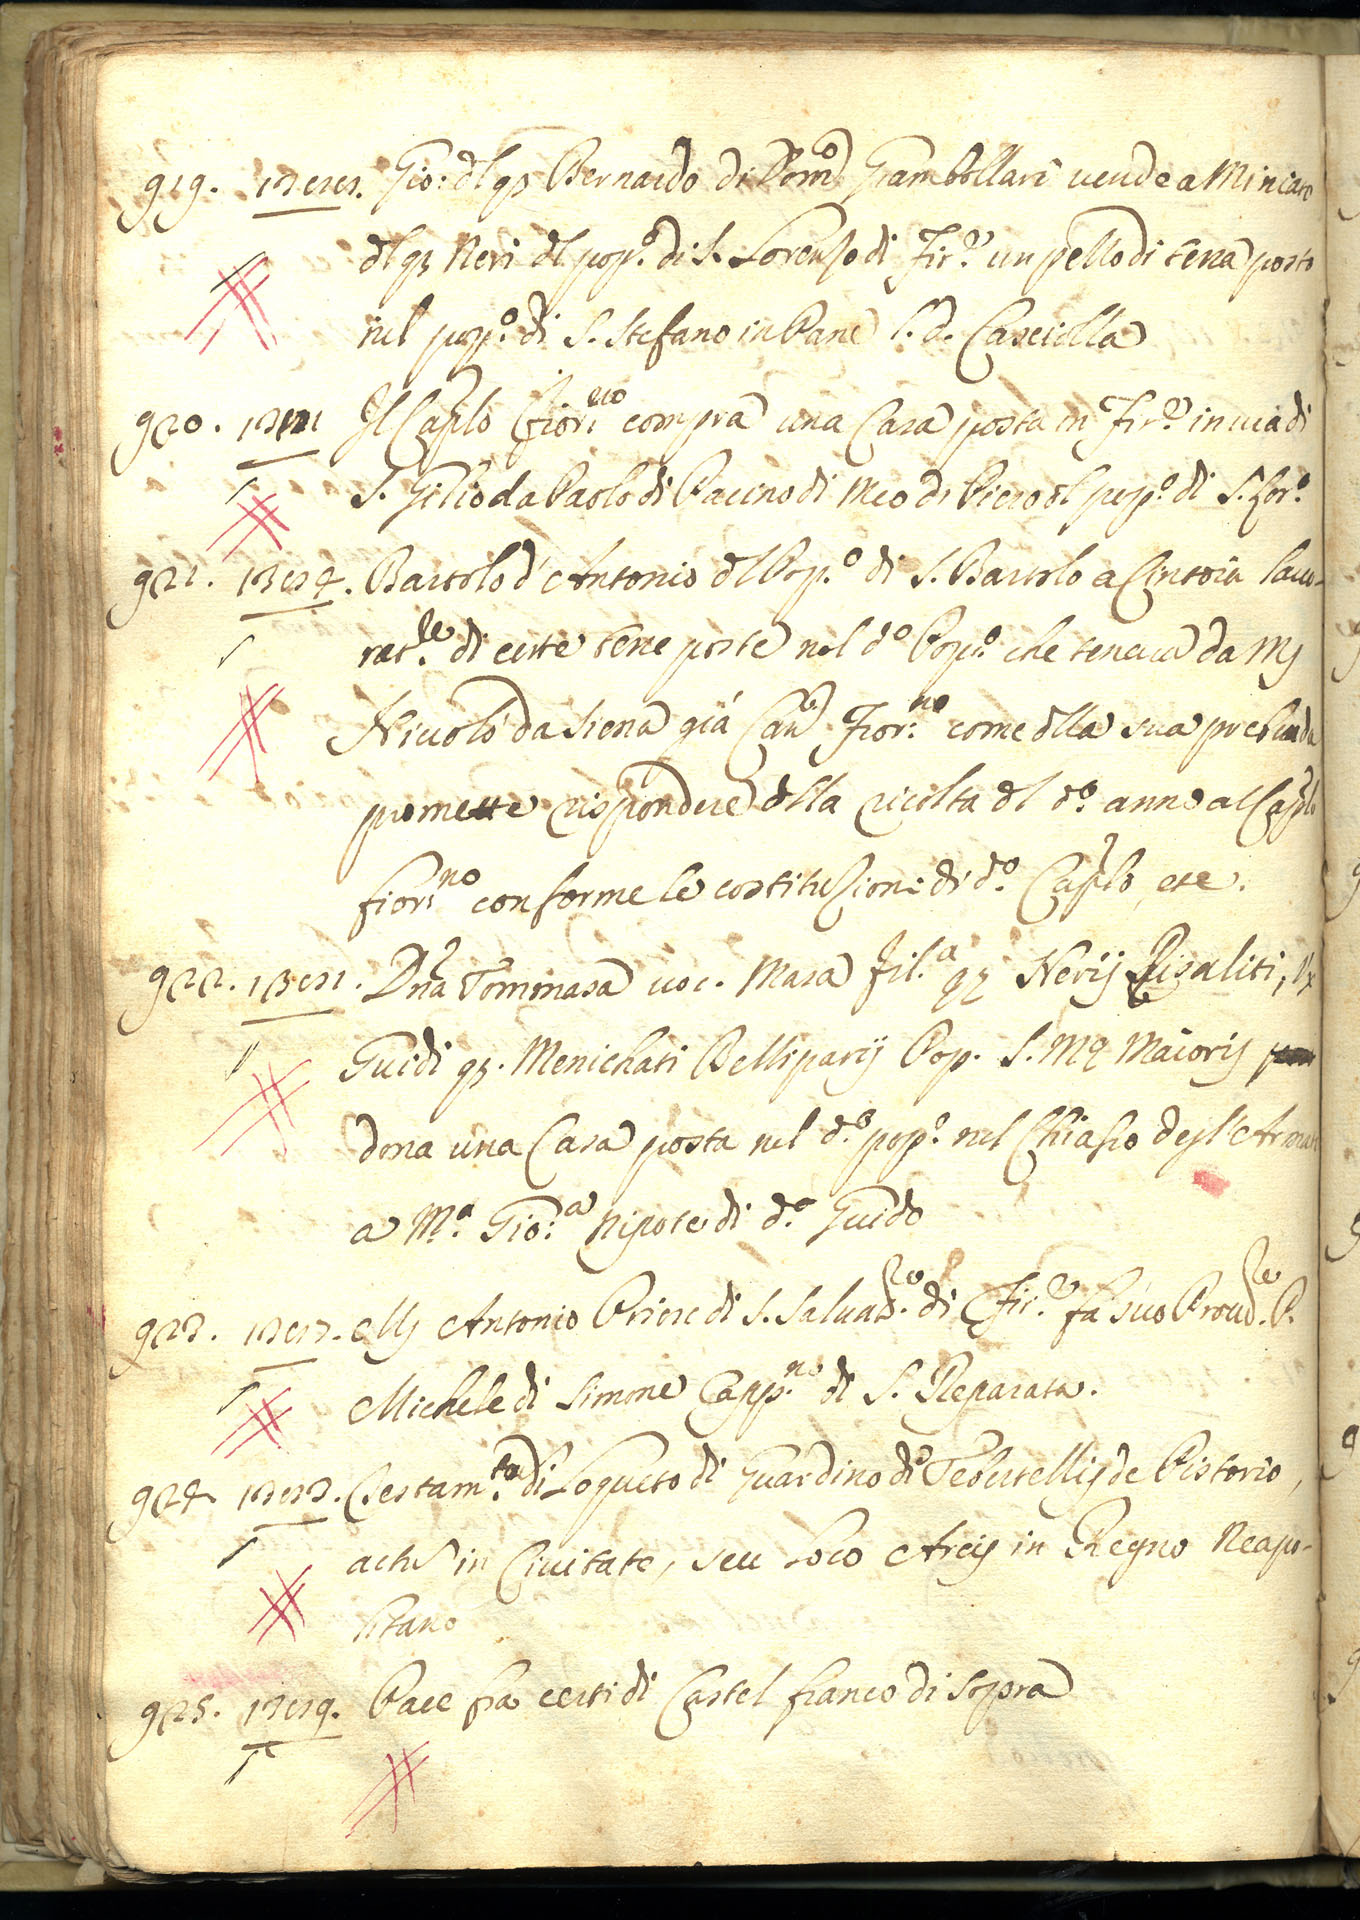 919. Gio: dl qƷ Bernardo di Dom.º Giambollari uende a Miniato
dl qƷ Neri dl pop.º di S. Lorenzo di Fir.e un pezzo di terra posto
nel pop.º di S. Stefano in Pane l. d. Casciella
920. Il Caplo Fior.no compra una Casa posta in Fir.e in uia di
S. Gilio da Paolo di Pacino di Meo di Piero dl pop.º di S. Lor.º
921. Bartolo d'Antonio dl Pop.º di S. Bartolo a Cintoia lauo-
rat.re di certe terre poste nel d.º Pop.º che teneua da Mʒ
Niccolò da Siena già Can.º Fior.no come dlla sua prebenda
promette rispondere dlla ricolta dl d.º anno al Caplo
fior.no conforme le costituzioni di d.º Caplo, etc.
922. Dna Tommasa uoc. Masa fil.a qƷ Nerij Risaliti, Ux
Guidi qƷ. Menichati Belliparij Pop. S. Mª Maioris
dona una Casa posta nel d.º pop.º nel Chiasso degl'Armati
a M.a Gio:a nipote di d.º Guido
923. Mʒ Antonio Priore di S. Saluad.re di Fir.e fa suo Proud.re P.
Michele di Simone Capp.no di S. Reparata.
924. Testam.to di Loqueto di Guardino de Tebertellis de Pistorio,
actus in Ciuitate, seu Loco Arcis in Regno Neapo-
litano
925. Pace fra certi di Castel franco di sopra